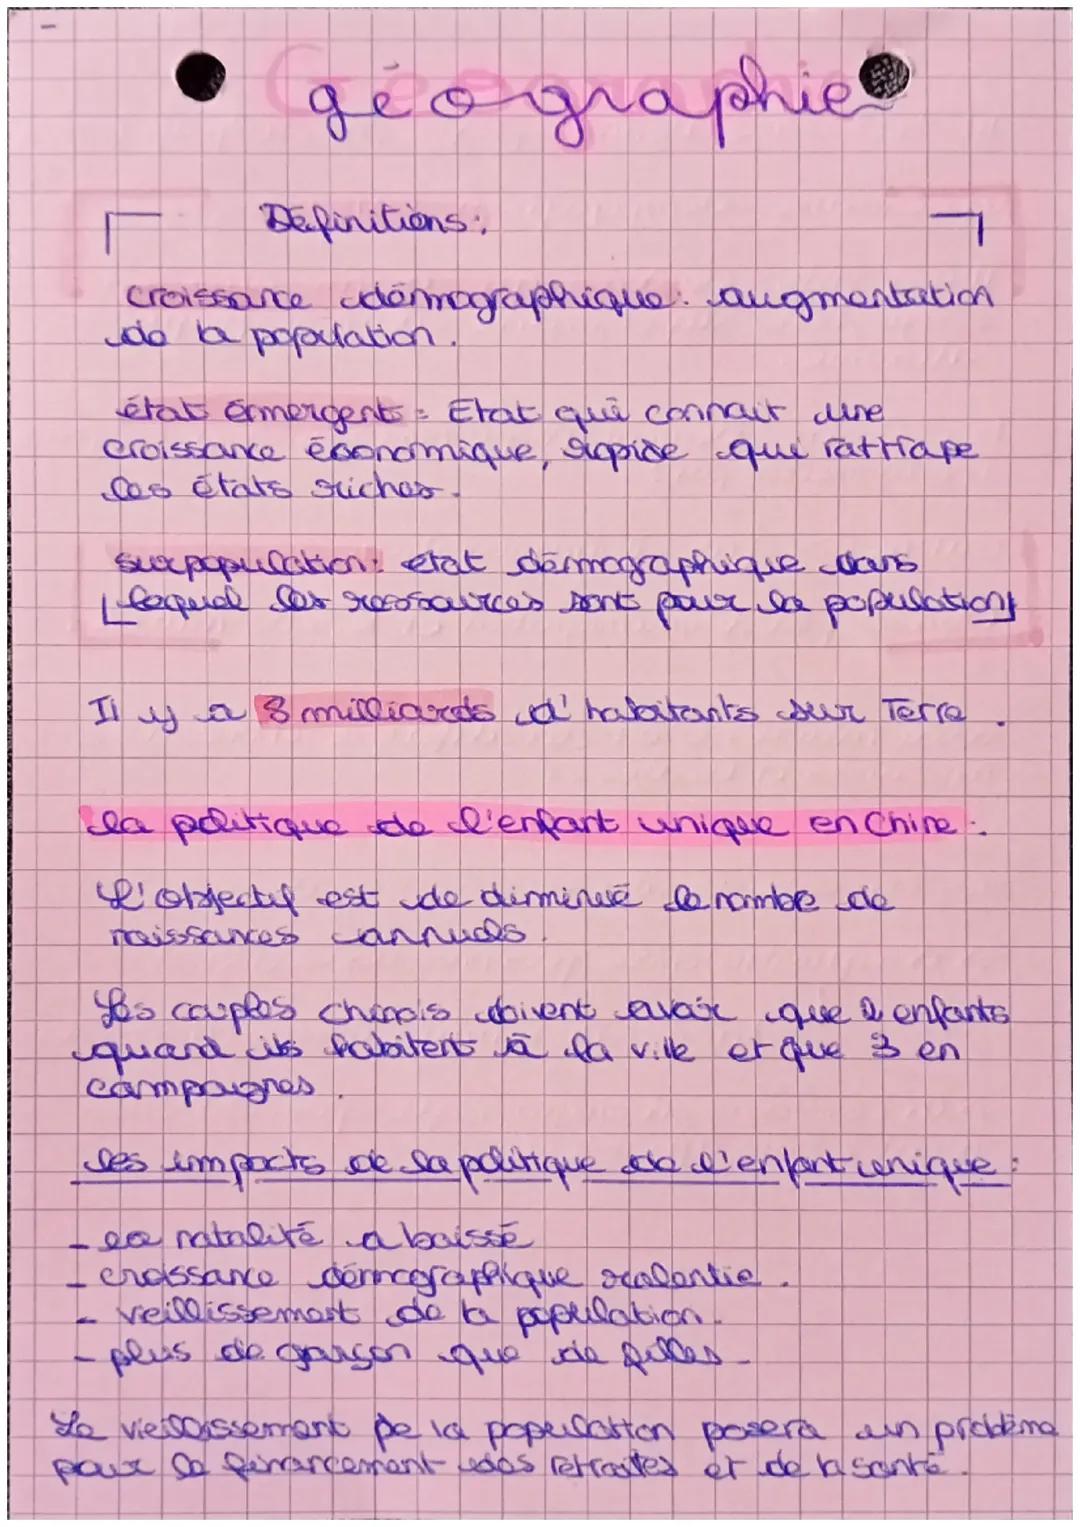 géographie
Définitions :
croissance démographique : augmentation
de la population.
état émergent : Etat qui connait une
croissance économique, rapide qui rattrape
les états riches.
surpopulation : etat démographique dans
lequel les ressources sont pour la population
Il y a 8 milliards d'habitants sur Terre.
la politique de l'enfant unique en Chine :
L'objectif est de diminué le nombre de
naissances annuels.
Les couples chinois doivent avoir que 2 enfants
quand ils habitent à la ville et que 3 en
campagnes.
les impacts de la politique de l'enfant unique :
- la natalité a baissé
- croissance démographique ralentie.
- veillissement de la population.
- plus de garçon que de filles.
Le vieillissement de la population posera un problème
pour le financement des retraites et de la santé.